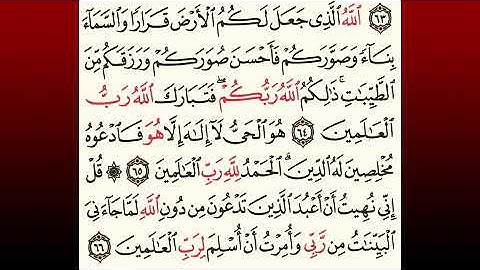 ٦٣ اللَّهُ الَّذِي جَعَلَ لَكُمُ الْأَرْضَ قَرَارًا وَالسَّمَاءَ
بِنَاءً وَصَوَّرَكُمْ فَأَحْسَنَ صُوَرَكُمْ وَرَزَقَكُم مِّنَ
الطَّيِّبَاتِ ۚ ذَٰلِكُمُ اللَّهُ رَبُّكُمْ ۖ فَتَبَارَكَ اللَّهُ رَبُّ
الْعَالَمِينَ ٦٤ هُوَ الْحَيُّ لَا إِلَٰهَ إِلَّا هُوَ فَادْعُوهُ
مُخْلِصِينَ لَهُ الدِّينَ ۗ الْحَمْدُ لِلَّهِ رَبِّ الْعَالَمِينَ ٦٥ ۞ قُلْ
إِنِّي نُهِيتُ أَنْ أَعْبُدَ الَّذِينَ تَدْعُونَ مِن دُونِ اللَّهِ لَمَّا جَاءَنِيَ
الْبَيِّنَاتُ مِن رَّبِّي وَأُمِرْتُ أَنْ أُسْلِمَ لِرَبِّ الْعَالَمِينَ ٦٦